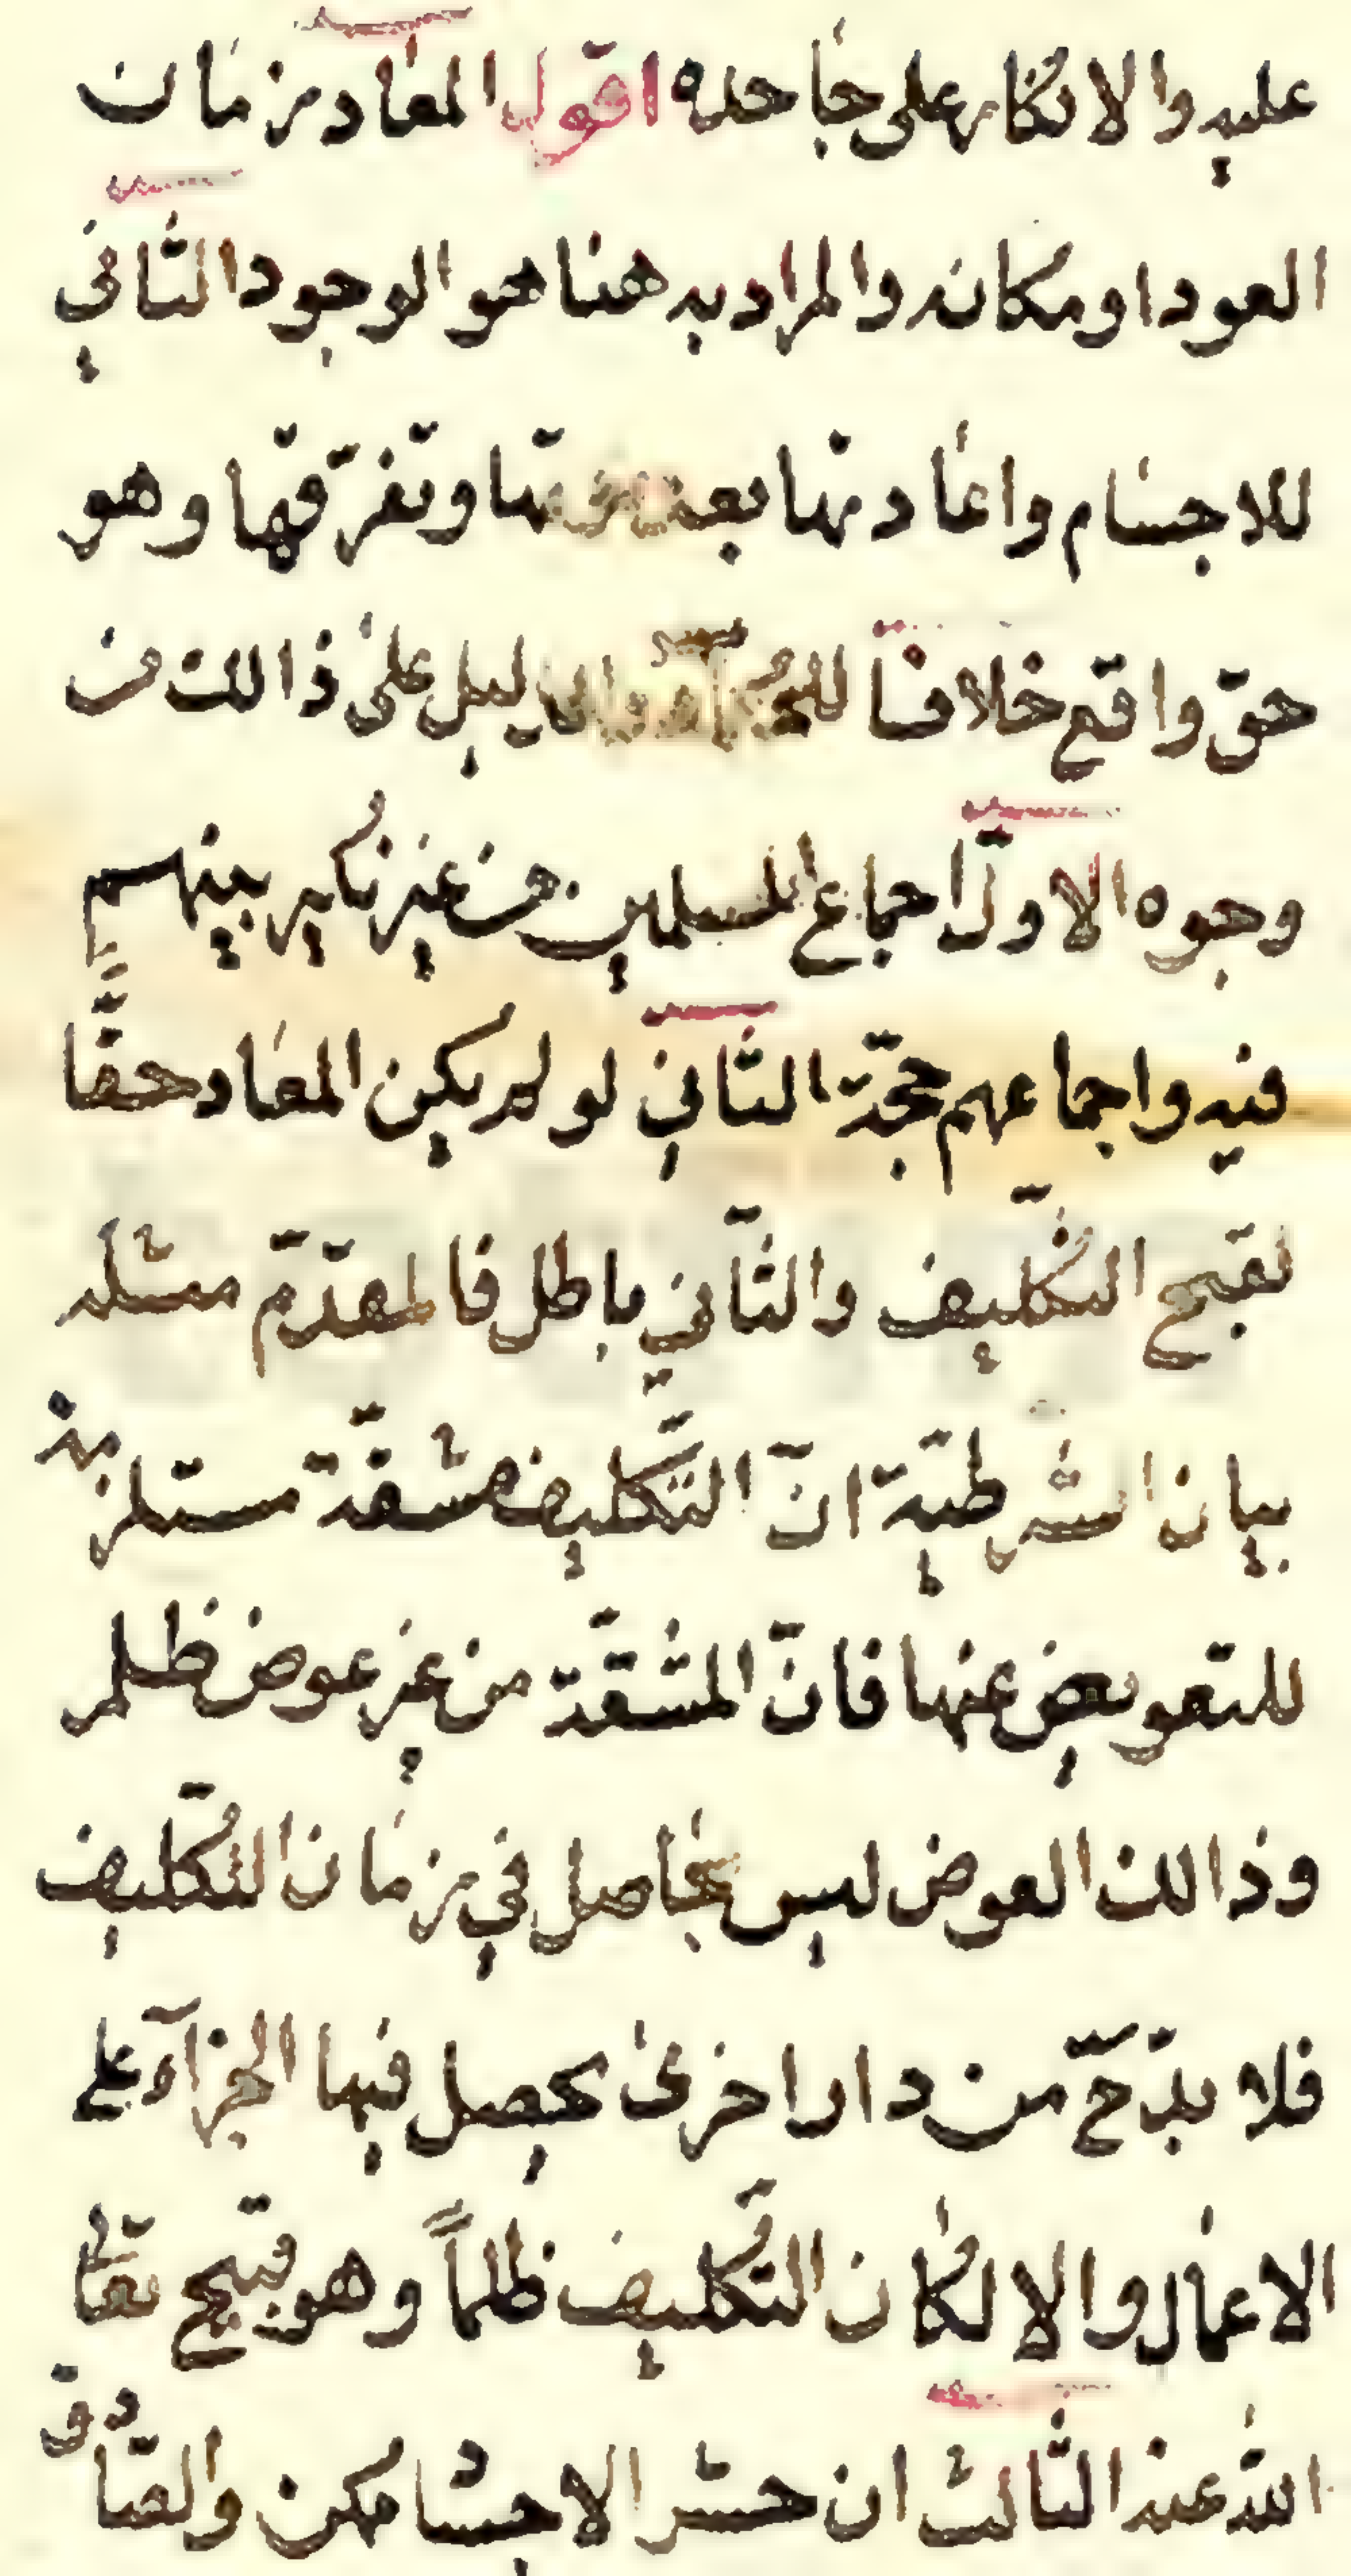 عليه والانكار على جاحده اقول المعاد زمان
العود او مكانه والمراد به هنا هو الوجود الثاني
للاجسام واعادتها بعد موتها وتفرّقها وهو
حقّ واقع خلافا للحكمآء والدليل على ذالك من
وجوه الاوّل اجماع المسلمين من غير نكير بينهم
فيه واجماعهم حجّة الثاني لو لم يكن المعاد حقًّا
لقبح التكليف والثّاني باطل فالمقدّم مثله
بيان الشرطيّة انّ التّكليف مشقّة مستلزمة
للتعويض عنها فانّ المشقّة من غير عوض ظلم
وذالك العوض ليس بحاصل في زمان التّكليف
فلا بدّ حّ من دار اخرى يحصل فيها الجزآء على
الاعمال والا لكان التّكليف ظلماً وهو قبيح تعالى
اللّه عنه الثّالث ان حشر الاجساد ممكن والصّادق